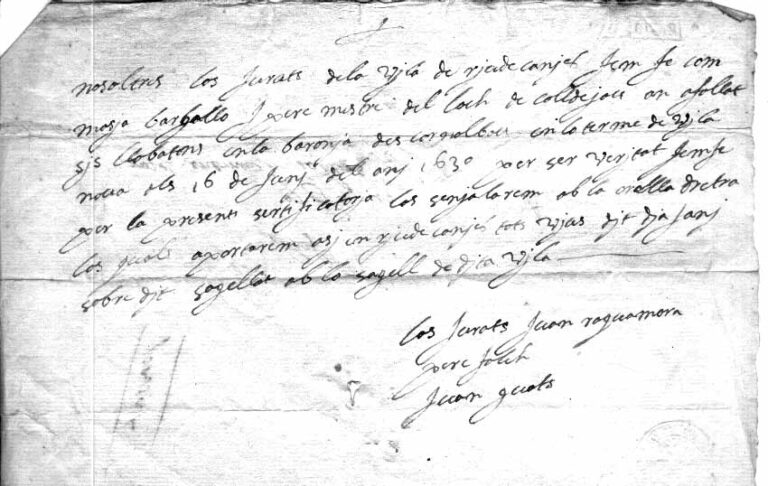 nosaltres los Jurats de la vjla de rjudecanjes fem fe com
masja bargallo J pere mestre del loch de colldejou an afollat
sis llobatons en la baronja descornalbou en lo terme de vjla
nova als 16 de Junj del anj 1630 per ser veritat fem fe
per la present sertificatorja los senjalarem ab la orella dretra
los quals aportarem asj en rjudecanjes tots vjus djt dja J anj
sobre djt sagellat ab lo sagell de djta vjla
los Jurats Juan roquamora
pere folch
Juan